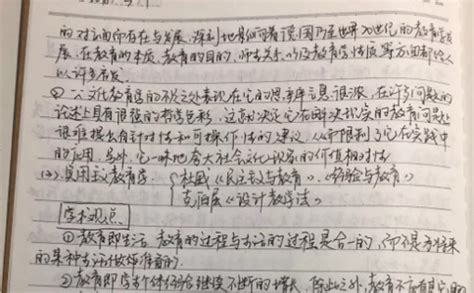 的对立面而存在与发展,深刻地影响着德国乃至世界20世纪的教育学发
展,在教育的本质、教育的目的、师生关系以及教育学性质等方面都给人
以许多启发。
②文化教育学的不足之处表现在它的思辨气息很浓,在许多问题的
论述上具有很强的哲学色彩,这就决定它在解决现实的教育问题上
很难提出有针对性和可操作性的建议,从而限制了它在实践中
的应用。另外,它一味地夸大社会文化现象的价值相对性
(3)实用主义教育学 杜威《民主主义与教育》、《经验与教育》
克伯屈《设计教学法》
学术观点
①教育即生活,教育的过程与生活的过程是合一的,而不是为将来
的某种生活做准备的。
②教育即学生个体经验继续不断的增长,除此之外,教育不应有其它目的